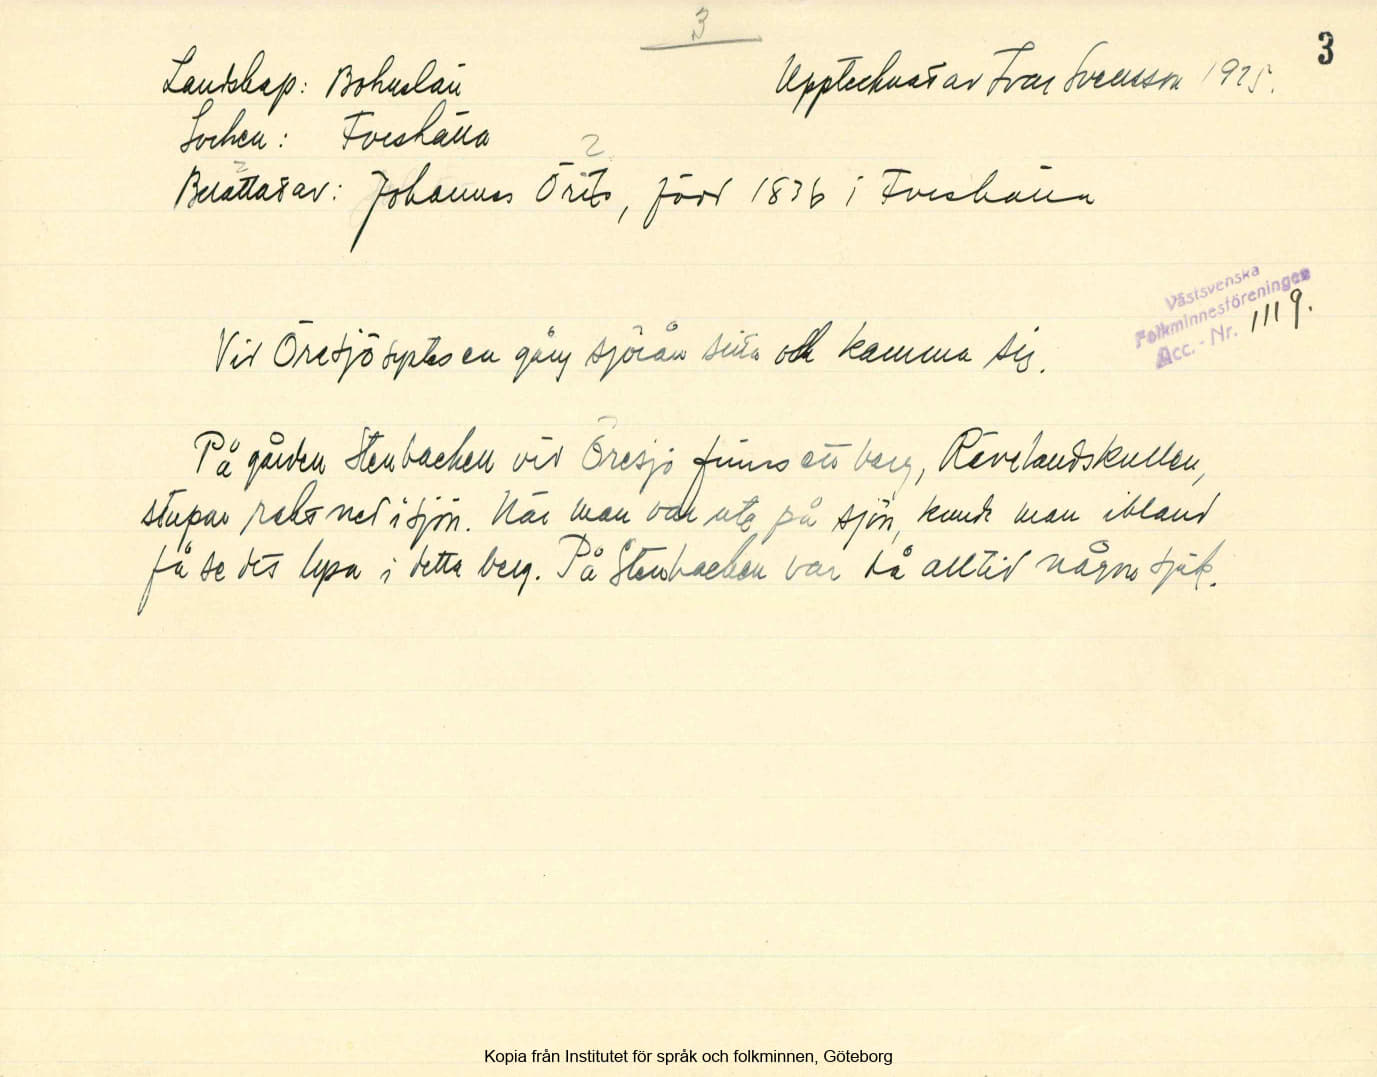 3
3
Landskap: Bohuslän
Upptecknat av Ivar Svensson 1925.
Socken: Foreshälla
2
Berättat av: Johannes, född 1836 i Foreshälla
Västsvenska
Folkminnesföreningen
Acc. - Nr. 1119.
Vid Öresjö syntes en gång sjörån sitta och kamma sig.
På gården Stenbacken vid Öresjö finns ett berg, Rävelandskullen,
stupar rakt ned i sjön. När man var ute på sjön, kunde man ibland
få se det lysa i detta berg. På Stenbacken var då alltid någon sjuk.
Kopia från Institutet för språk och folkminnen, Göteborg